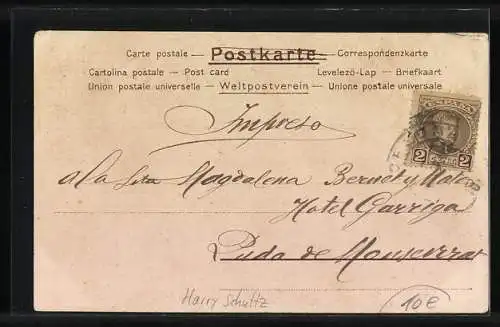 Carte postale — Postkarte — Correspondenzkarte
Cartolina postale — Post card Levelező-Lap — Briefkaart
Union postale universelle — Weltpostverein — Unione postale universale
Impreso
ESPAÑA
2 2
A La Srta Magdalena Bernet y
Hotel Garriga
Puda de Monserrat
Harry Schultz
10€